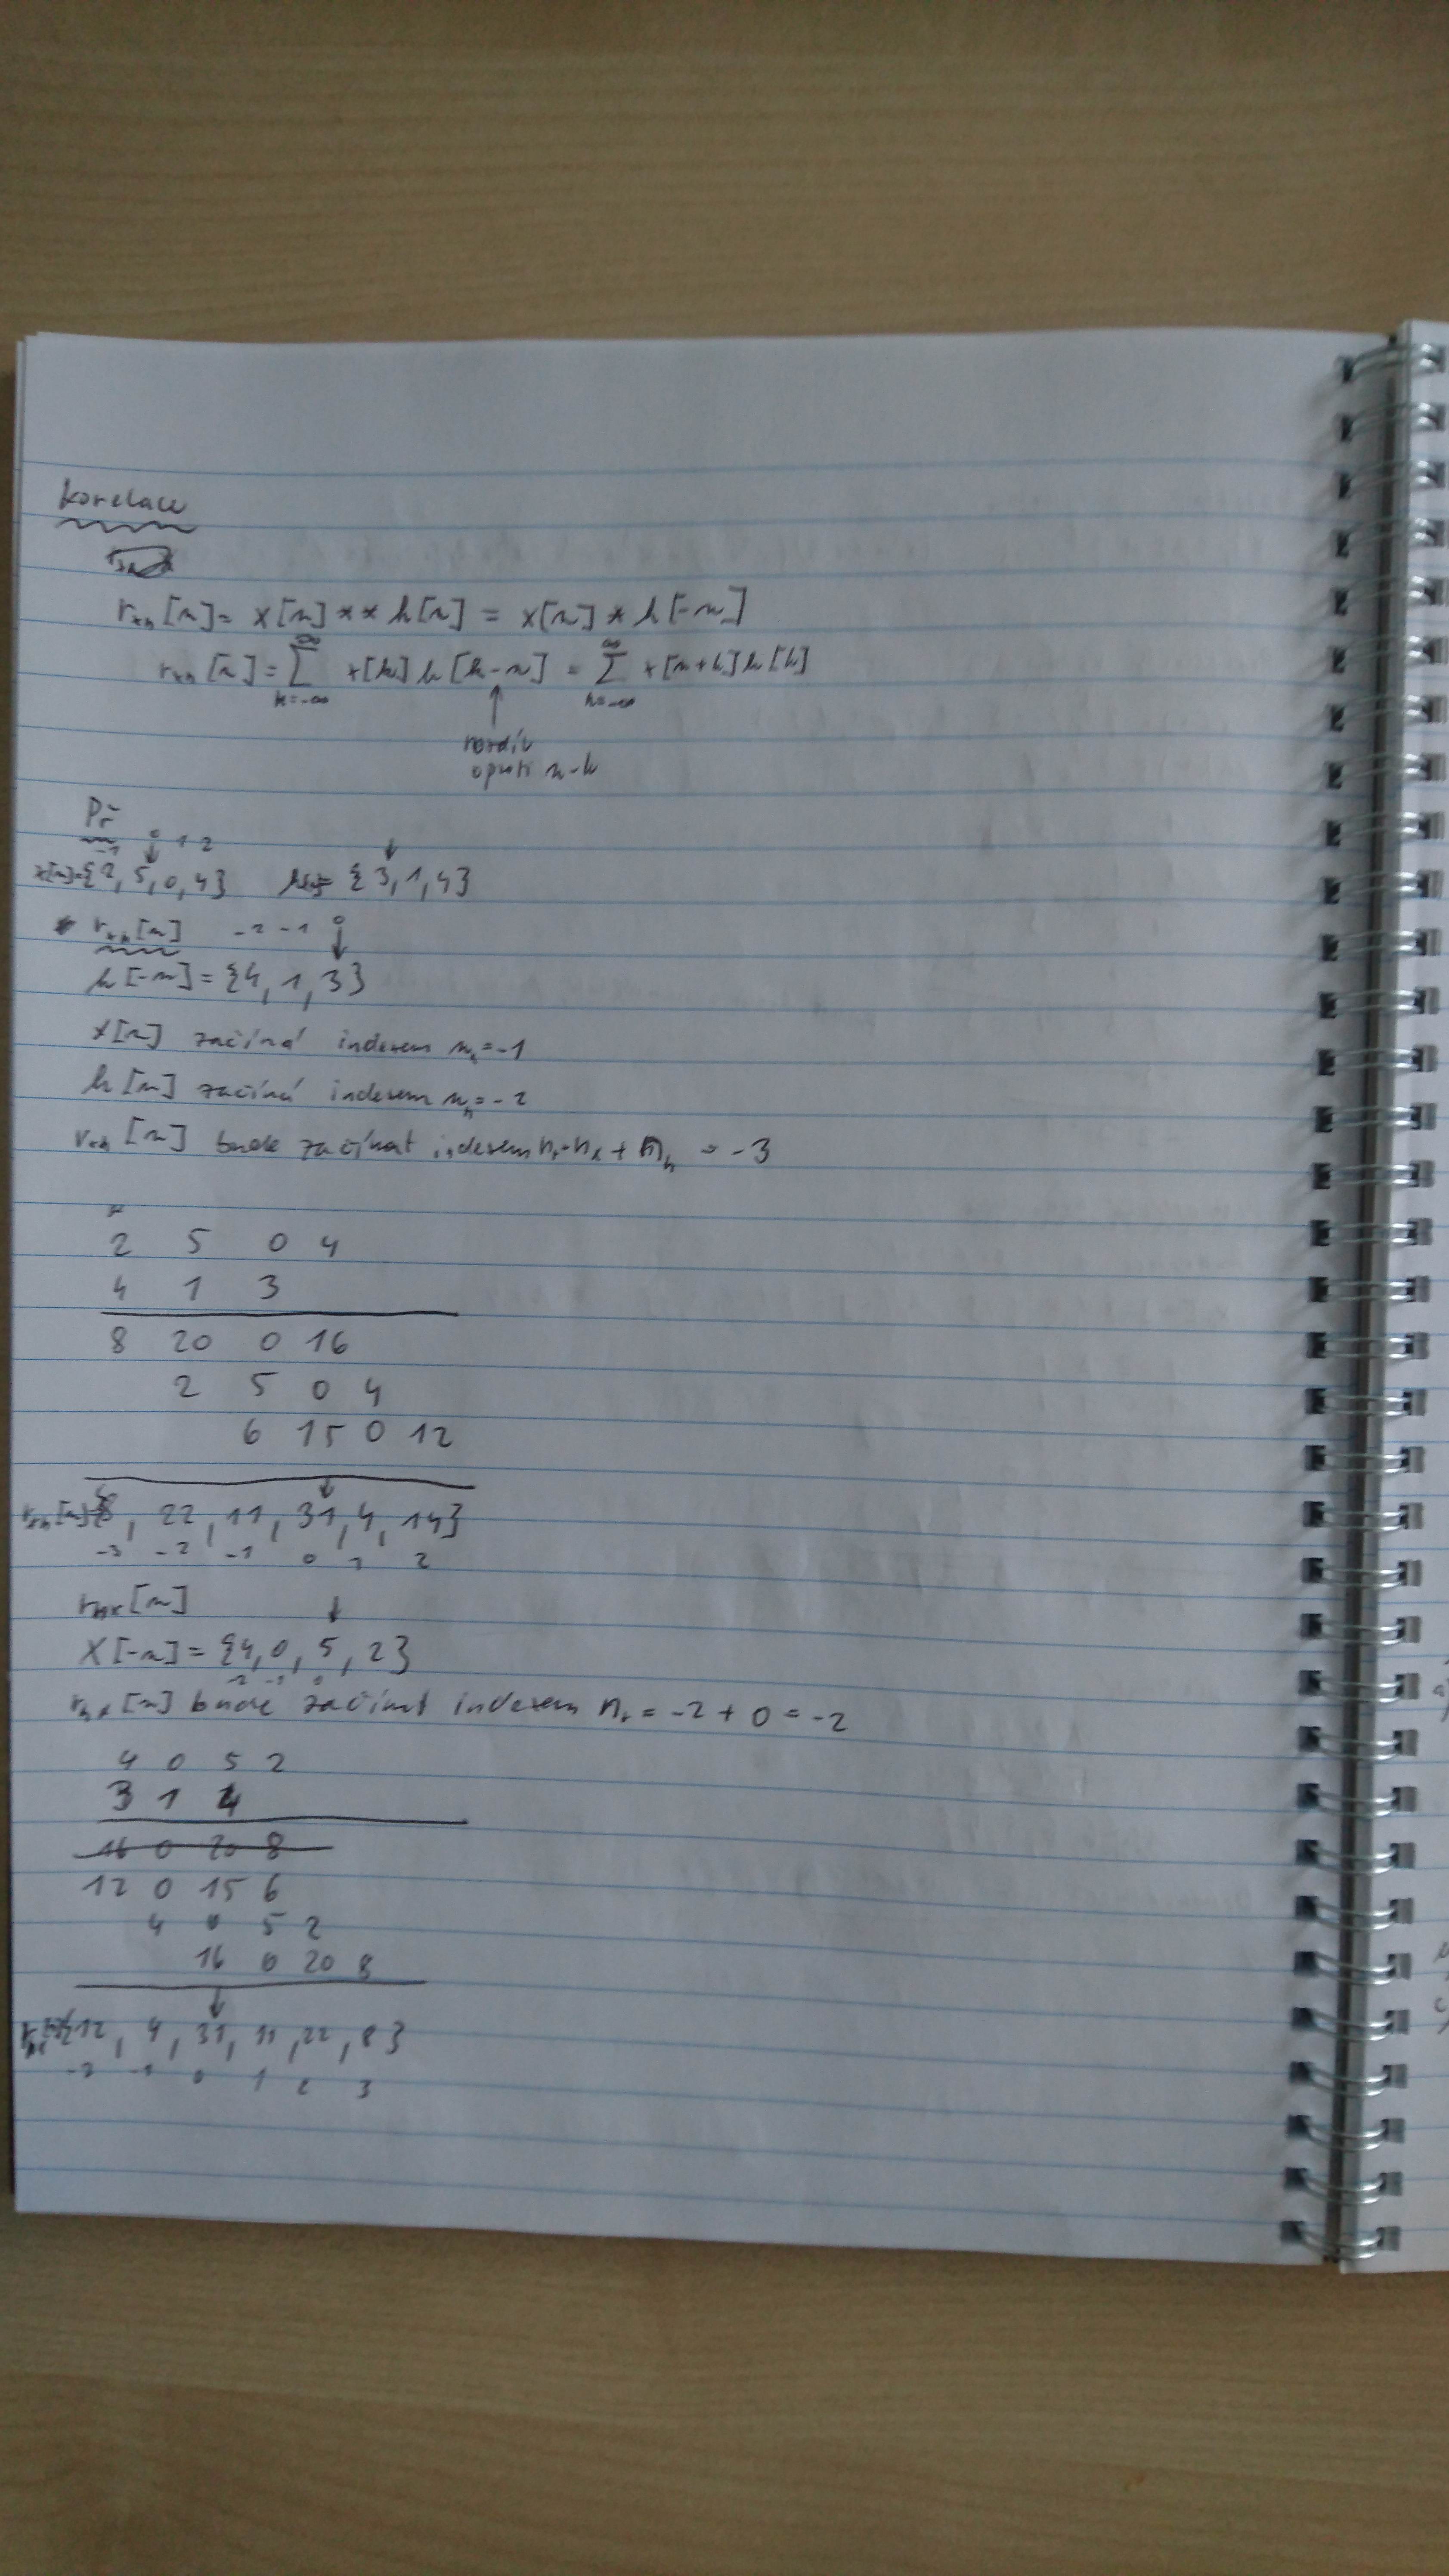 Korelace
r_xh[n] = x[n] ** h[n] = x[n] * h[-n]
r_xh[n] = ∑_{k=-∞}^{∞} x[k] h[k-n] = ∑_{k=-∞}^{∞} x[n+k] h[k]
↑
rozdíl
oproti n-k
Př
-1 0 1 2
↓ ↓
x[n]={2, 5, 0, 4} h[n]= {3, 1, 4}
r_xh[n] -2 -1 0
↓
h[-n] = {4, 1, 3}
x[n] začíná indexem n_x = -1
h[n] začíná indexem n_h = -2
r_xh[n] bude začínat indexem n_r = n_x + n_h = -3
2 5 0 4
4 1 3
8 20 0 16
2 5 0 4
6 15 0 12
↓
r_xh[n]={8, 22, 11, 31, 4, 14}
-3 -2 -1 0 1 2
r_hx[n]
↓
x[-n] = {4, 0, 5, 2}
-2 -1 0
r_hx[n] bude začínat indexem n_r = -2 + 0 = -2
4 0 5 2
3 1 4
16 0 20 8
12 0 15 6
4 0 5 2
16 0 20 8
↓
r_hx[n]={12, 4, 31, 11, 22, 8}
-2 -1 0 1 2 3